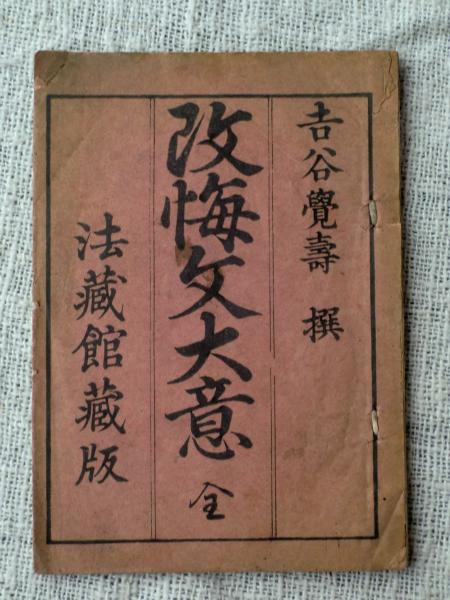 吉谷覺壽 撰
改悔文大意 全
法藏館藏版